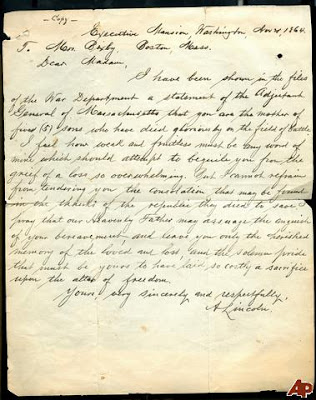 — Copy —
Executive Mansion, Washington, Nov 21, 1864.
To Mrs. Bixby, Boston, Mass.
Dear Madam,
I have been shown in the files
of the War Department a statement of the Adjutant
General of Massachusetts, that you are the mother of
five (5) sons who have died gloriously on the field of battle
I feel how weak and fruitless must be any word of
mine which should attempt to beguile you from the
grief of a loss so overwhelming. But I cannot refrain
from tendering you the consolation that may be found
in the thanks of the republic they died to save I
pray that our Heavenly Father may assuage the anguish
of your bereavement, and leave you only the cherished
memory of the loved and lost, and the solemn pride
that must be yours to have laid so costly a sacrifice
upon the altar of freedom.
Yours, very sincerely and respectfully,
A Lincoln.
AP